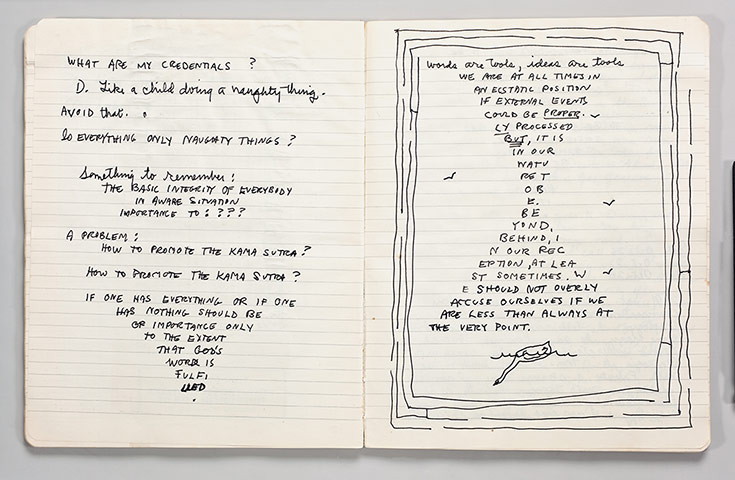 WHAT ARE MY CREDENTIALS ?
D. Like a child doing a naughty thing.
AVOID that. .
Is EVERYTHING ONLY NAUGHTY THINGS ?
Something to remember:
THE BASIC INTEGRITY OF EVERYBODY
IN AWARE SITUATION
IMPORTANCE TO : ???
A PROBLEM :
HOW TO PROMOTE THE KAMA SUTRA ?
HOW TO PROMOTE THE KAMA SUTRA ?
IF ONE HAS EVERYTHING OR IF ONE
HAS NOTHING SHOULD BE
OF IMPORTANCE ONLY
TO THE EXTENT
THAT GOD'S
WORD IS
FULFI
LLED
.
words are tools, ideas are tools
WE ARE AT ALL TIMES IN
AN ECSTATIC POSITION
IF EXTERNAL EVENTS
COULD BE PROPER.
LY PROCESSED
BUT, IT IS
IN OUR
NATU
RE T
O B
E.
BE
YOND,
BEHIND, I
N OUR REC
EPTION, AT LEA
ST SOMETIMES. W
E SHOULD NOT OVERLY
ACCUSE OURSELVES IF WE
ARE LESS THAN ALWAYS AT
THE VERY POINT.